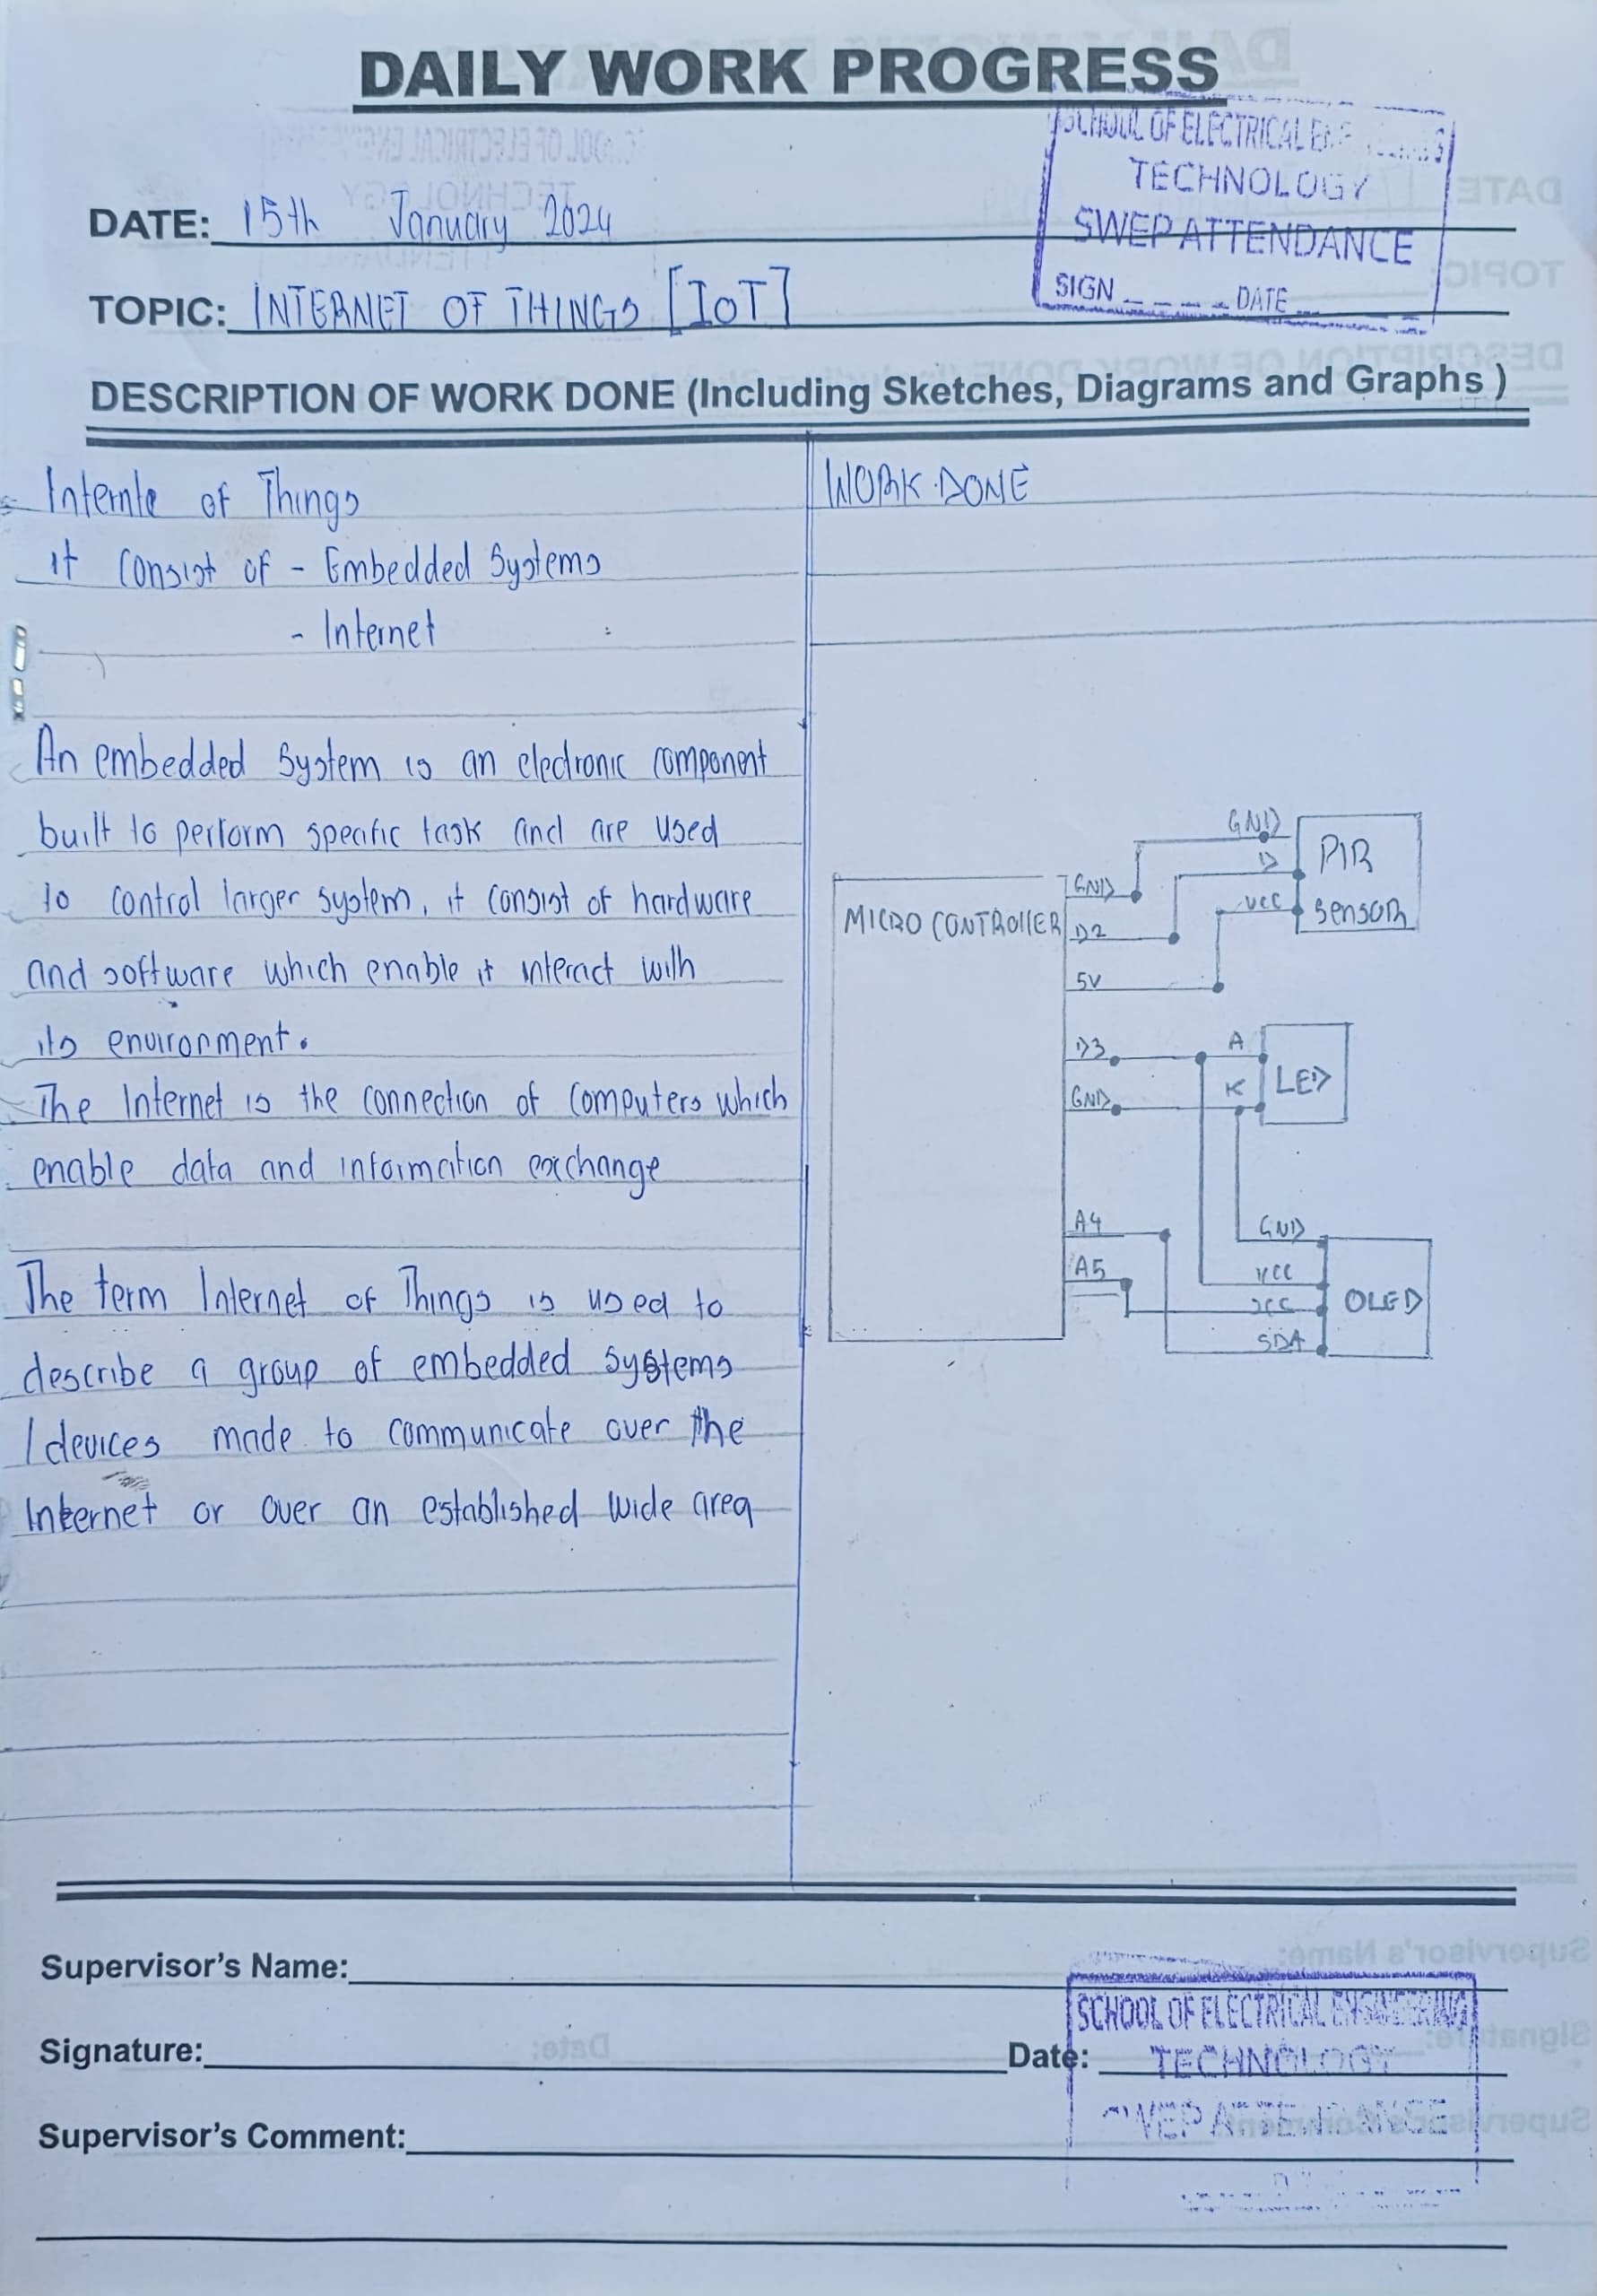 DAILY WORK PROGRESS
SCHOOL OF ELECTRICAL
TECHNOLOGY
SWEP ATTENDANCE
SIGN _ _ _ _ DATE _
DATE: 15th January 2024
TOPIC: INTERNET OF THINGS [IoT]
DESCRIPTION OF WORK DONE (Including Sketches, Diagrams and Graphs )
Internte of Things
it consist of - Embedded Systems
- Internet
An embedded system is an electronic component
built to perform specific task and are used
to control larger system, it consist of hardware
and software which enable it interact with
its environment.
The Internet is the connection of computers which
enable data and information exchange
The term Internet of Things is used to
describe a group of embedded systems
/devices made to communicate over the
Internet or over an established wide area
WORK DONE
MICRO CONTROLLER
GND
D2
5V
D3
GND
A4
A5
GND
D
VCC
PIR
sensor
A
K
LED
GND
VCC
SDA
OLED
Supervisor's Name:
Signature:
Date:
Supervisor's Comment:
SCHOOL OF ELECTRICAL ENGINEERING
TECHNOLOGY